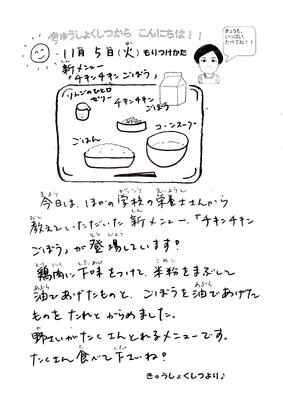 きゅうしょくしつから こんにちは！！
きょうも、いっぱいたべてね！！
11月 5日(火) もりつけかた
新メニュー
「チキンチキンごぼう」
りんごのひとくちゼリー
チキンチキンごぼう
コーンスープ
ごはん
今日は、ほかの学校の栄養士さんから
教えていただいた新メニュー、「チキンチキン
ごぼう」が登場しています！
鶏肉に下味をつけて、米粉をまぶして
油であげたものと、ごぼうを油であげた
ものをたれとからめました。
野さいがたくさんとれるメニューです。
たくさん食べて下さいね？
きゅうしょくしつより♪